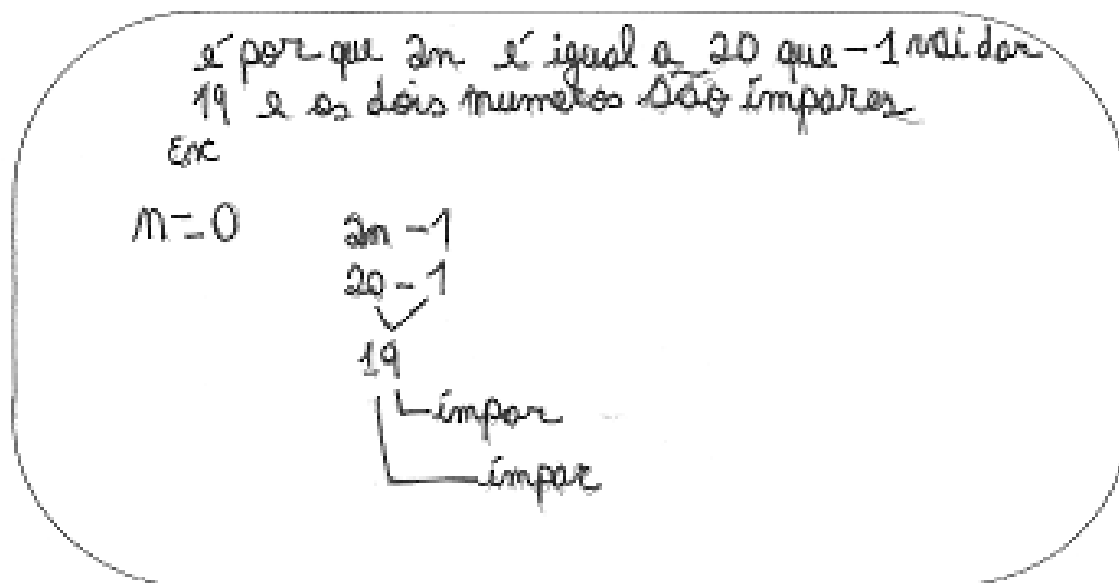 é por que 2n é igual a 20 que -1 vai dar
19 e os dois numeros são ímpares
Ex
n=0 2n-1
20-1
19
ímpar
ímpar